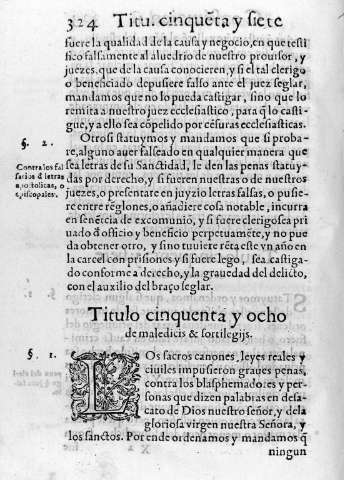 324 Titu. cinquẽta y siete
fuere la qualidad de la causa y negocio, en que testi
fico falsamente al aluedrio de nuestro prouisor, y
juezes, que de la causa conocieren, y si el tal clerigo
o beneficiado depusiere falso ante el juez seglar,
mandamos que no lo pueda castigar, sino que lo
remita a nuestro juez ecclesiastico, para q̃ lo casti-
gue, y a ello sea cõpelido por césuras ecclesiasticas.
§. 2.
Contra los fal
sarios d̃ letras
apostolicas, o
episcopales.
Otrosi statuymos y mandamos que si proba-
re, alguno auer falseado en qualquier manera que
sea letras de su Sanctidad, le den las penas statuy-
das por derecho, y si fueren nuestras o de nuestros
juezes, o presentare en juyzio letras falsas, o pusie-
re entre rẽglones, o añadiere cosa notable, incurra
en sentẽcia de excomuniõ, y si fuere clerigo sea pri
uado d̃ officio y beneficio perpetuamẽte, y no pue
da obtener otro, y sino tuuiere rẽta este vn año en
la carcel con prisiones y si fuere lego, sea castiga-
do conforme a derecho, y la grauedad del delicto,
con el auxilio del braço seglar.
Titulo cinquenta y ocho
de maledicis & sortilegijs.
§. 1.
LOs sacros canones, leyes reales y
ciuiles impusieron graues penas,
contra los blasphemadores y per-
sonas que dizen palabras en desa-
cato de Dios nuestro señor, y de la
gloriosa virgen nuestra Señora, y
los sanctos. Por ende ordenamos y mandamos q̃
ningun